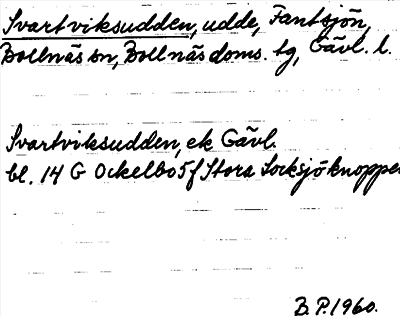 Svartviksudden, udde, Fantsjön,
Bollnäs sn, Bollnäs doms. tg, Gävl. l.
Svartviksudden, ek Gävl.
bl. 14 G Ockelbo 5f Stora Locksjöknoppen
B.P. 1960.